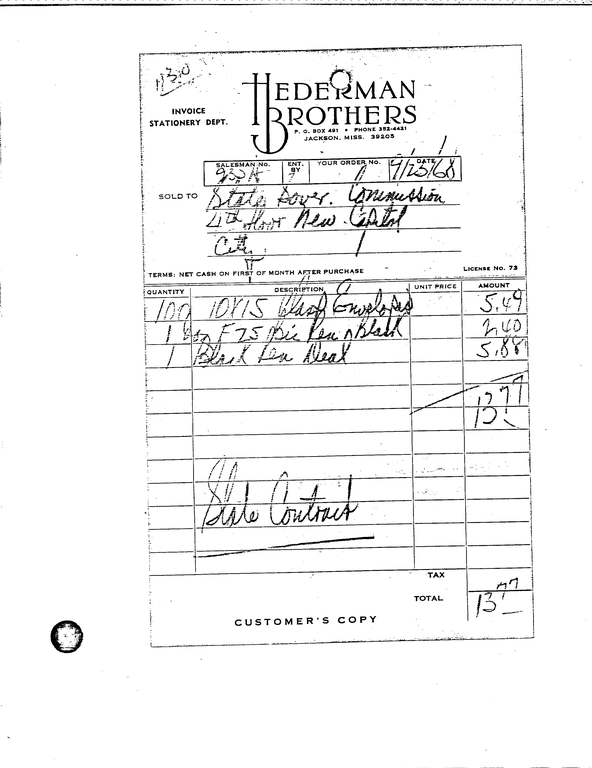 1130
HEDERMAN
BROTHERS
INVOICE
STATIONERY DEPT.
P. O. BOX 491 • PHONE 352-4421
JACKSON, MISS. 39205
SALESMAN NO. ENT. BY YOUR ORDER NO. DATE
9/25/68
SOLD TO State Sover. Commission
4th Floor New Capitol
City
TERMS: NET CASH ON FIRST OF MONTH AFTER PURCHASE LICENSE NO. 73
QUANTITY DESCRIPTION UNIT PRICE AMOUNT
100 10X15 Clasp Envelopes 5.49
1 F25 Bic Pen Black 2.40
1 Black Pen 5.88
13 77
State Contract
TAX
TOTAL 13 77
CUSTOMER'S COPY